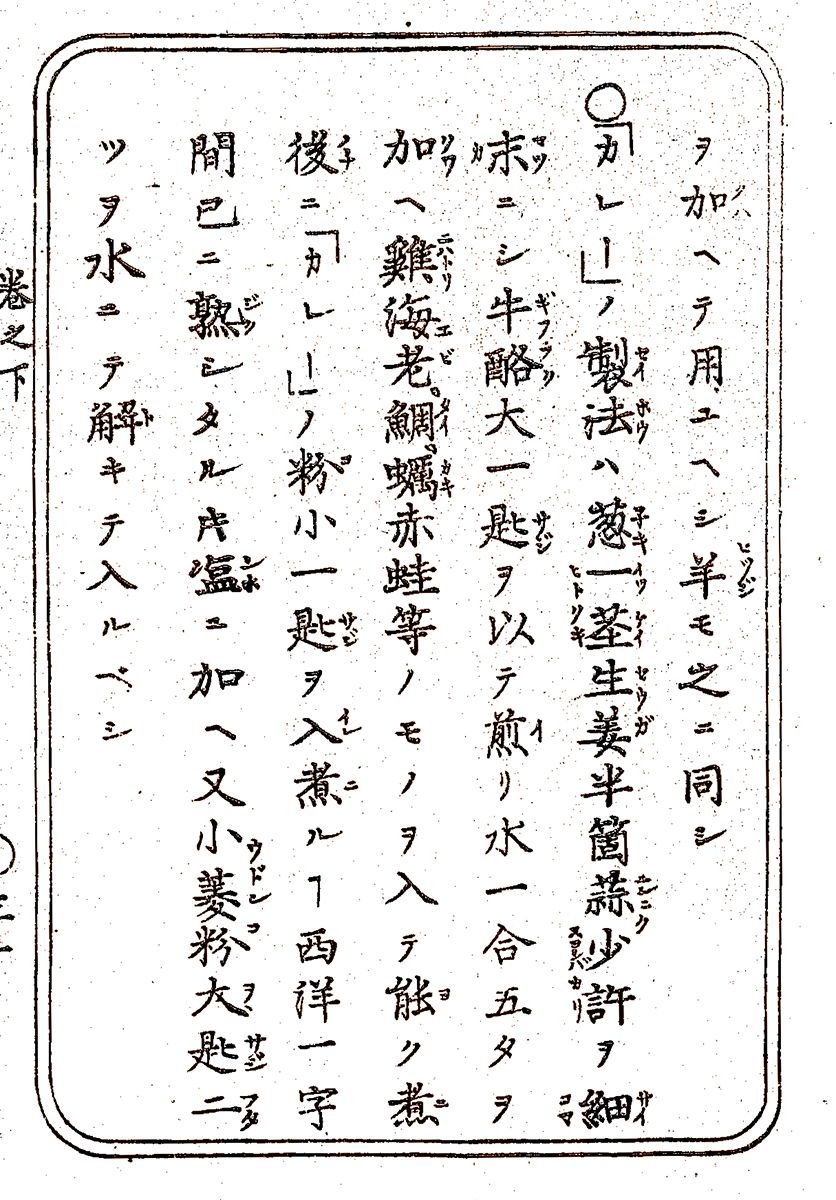 ヲ加ヘテ用ユヘシ羊モ之ニ同シ
○「カレー」ノ製法ハ葱一茎生姜半箇蒜少許ヲ細
末ニシ牛酪大一匙ヲ以テ煎リ水一合五タヲ
加ヘ雞、海老、鯛、蠣、赤蛙等ノモノヲ入テ能ク煮
後ニ「カレー」ノ粉小一匙ヲ入煮ルヿ西洋一字
間已ニ熟シタル𪜈塩ニ加ヘ又小菱粉大匙二
ツヲ水ニテ解キテ入ルベシ
巻之下